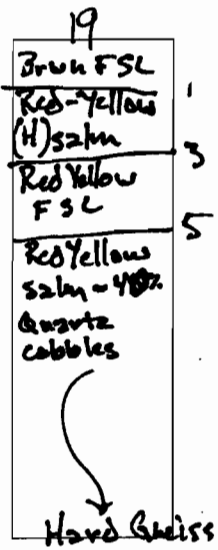 19
Brwn FSL
1
Red-Yellow
(H) salm
3
Red Yellow
FSL
5
Red Yellow
salm ~ 40%
Quartz
cobbles
Hard Gneiss